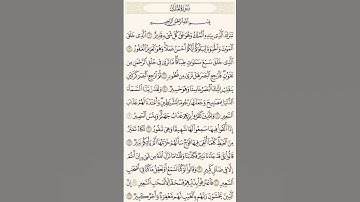 سُورَةُ الْمُلْكِ
بِسْمِ اللَّهِ الرَّحْمَٰنِ الرَّحِيمِ
تَبَارَكَ الَّذِي بِيَدِهِ الْمُلْكُ وَهُوَ عَلَىٰ كُلِّ شَيْءٍ قَدِيرٌ ١ الَّذِي خَلَقَ
الْمَوْتَ وَالْحَيَاةَ لِيَبْلُوَكُمْ أَيُّكُمْ أَحْسَنُ عَمَلًا وَهُوَ الْعَزِيزُ الْغَفُورُ ٢ الَّذِي
خَلَقَ سَبْعَ سَمَاوَاتٍ طِبَاقًا مَّا تَرَىٰ فِي خَلْقِ الرَّحْمَٰنِ مِن
تَفَاوُتٍ فَارْجِعِ الْبَصَرَ هَلْ تَرَىٰ مِن فُطُورٍ ٣ ثُمَّ ارْجِعِ الْبَصَرَ كَرَّتَيْنِ
يَنقَلِبْ إِلَيْكَ الْبَصَرُ خَاسِئًا وَهُوَ حَسِيرٌ ٤ وَلَقَدْ زَيَّنَّا السَّمَاءَ
الدُّنْيَا بِمَصَابِيحَ وَجَعَلْنَاهَا رُجُومًا لِّلشَّيَاطِينِ وَأَعْتَدْنَا لَهُمْ عَذَابَ
السَّعِيرِ ٥ وَلِلَّذِينَ كَفَرُوا بِرَبِّهِمْ عَذَابُ جَهَنَّمَ وَبِئْسَ الْمَصِيرُ ٦
إِذَا أُلْقُوا فِيهَا سَمِعُوا لَهَا شَهِيقًا وَهِيَ تَفُورُ ٧ تَكَادُ تَمَيَّزُ
مِنَ الْغَيْظِ كُلَّمَا أُلْقِيَ فِيهَا فَوْجٌ سَأَلَهُمْ خَزَنَتُهَا أَلَمْ يَأْتِكُمْ نَذِيرٌ ٨
قَالُوا بَلَىٰ قَدْ جَاءَنَا نَذِيرٌ فَكَذَّبْنَا وَقُلْنَا مَا نَزَّلَ اللَّهُ مِن شَيْءٍ إِنْ أَنتُمْ
إِلَّا فِي ضَلَالٍ كَبِيرٍ ٩ وَقَالُوا لَوْ كُنَّا نَسْمَعُ أَوْ نَعْقِلُ مَا كُنَّا فِي أَصْحَابِ
السَّعِيرِ ١٠ فَاعْتَرَفُوا بِذَنبِهِمْ فَسُحْقًا لِّأَصْحَابِ السَّعِيرِ ١١ إِنَّ
الَّذِينَ يَخْشَوْنَ رَبَّهُم بِالْغَيْبِ لَهُم مَّغْفِرَةٌ وَأَجْرٌ كَبِيرٌ ١٢